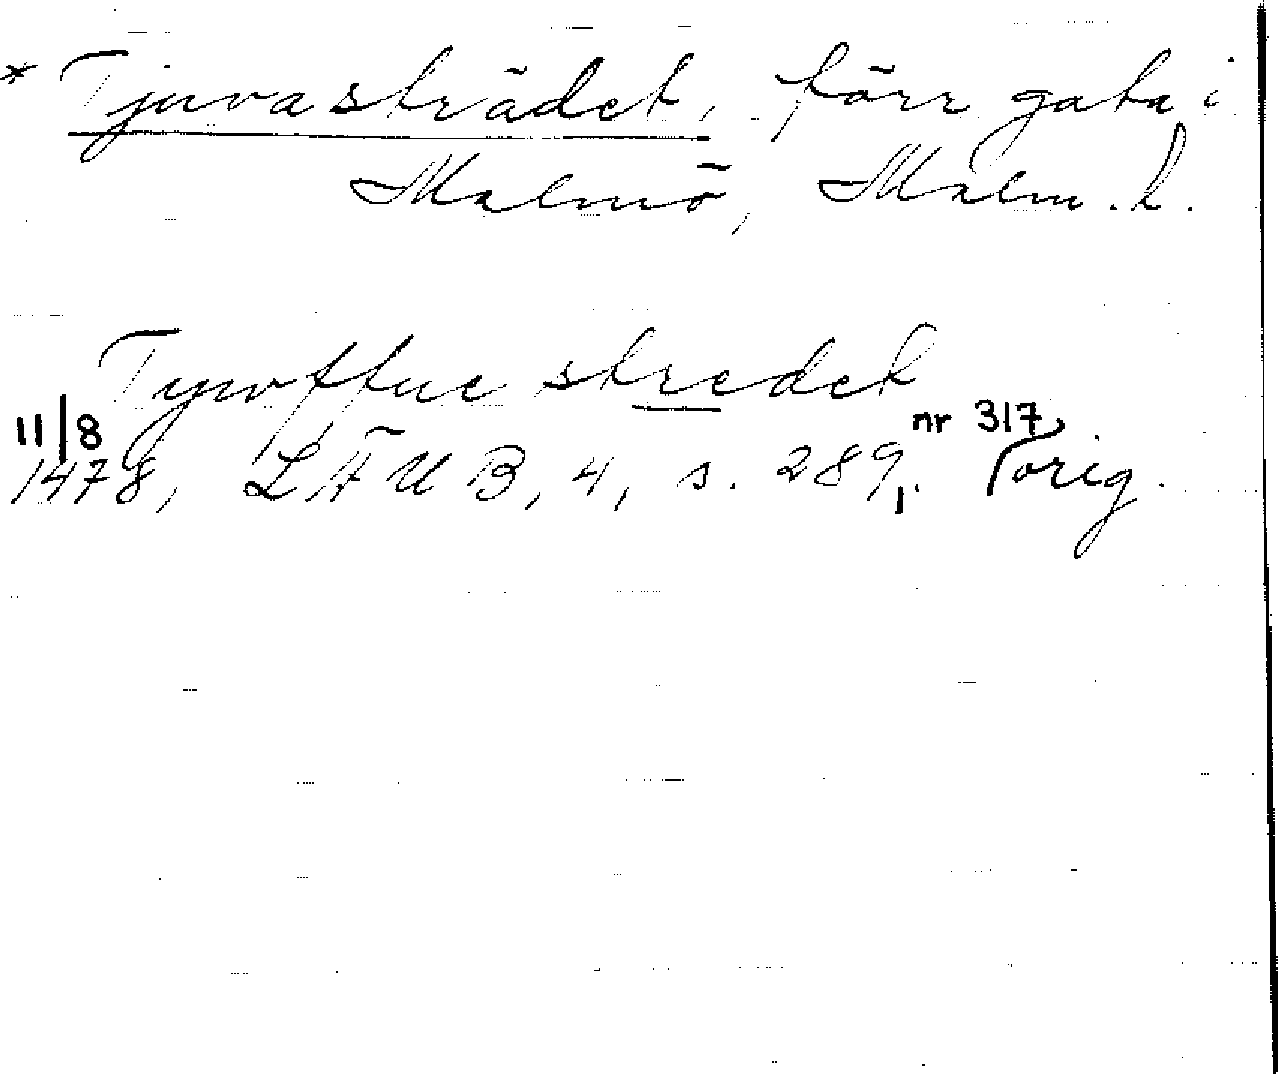 * Tjuvasträdet, förr gata i
Malmö, Malm. h.
Tywffue stredet
11/8 nr 317
1478, LÄUB, 4, s. 289, orig.